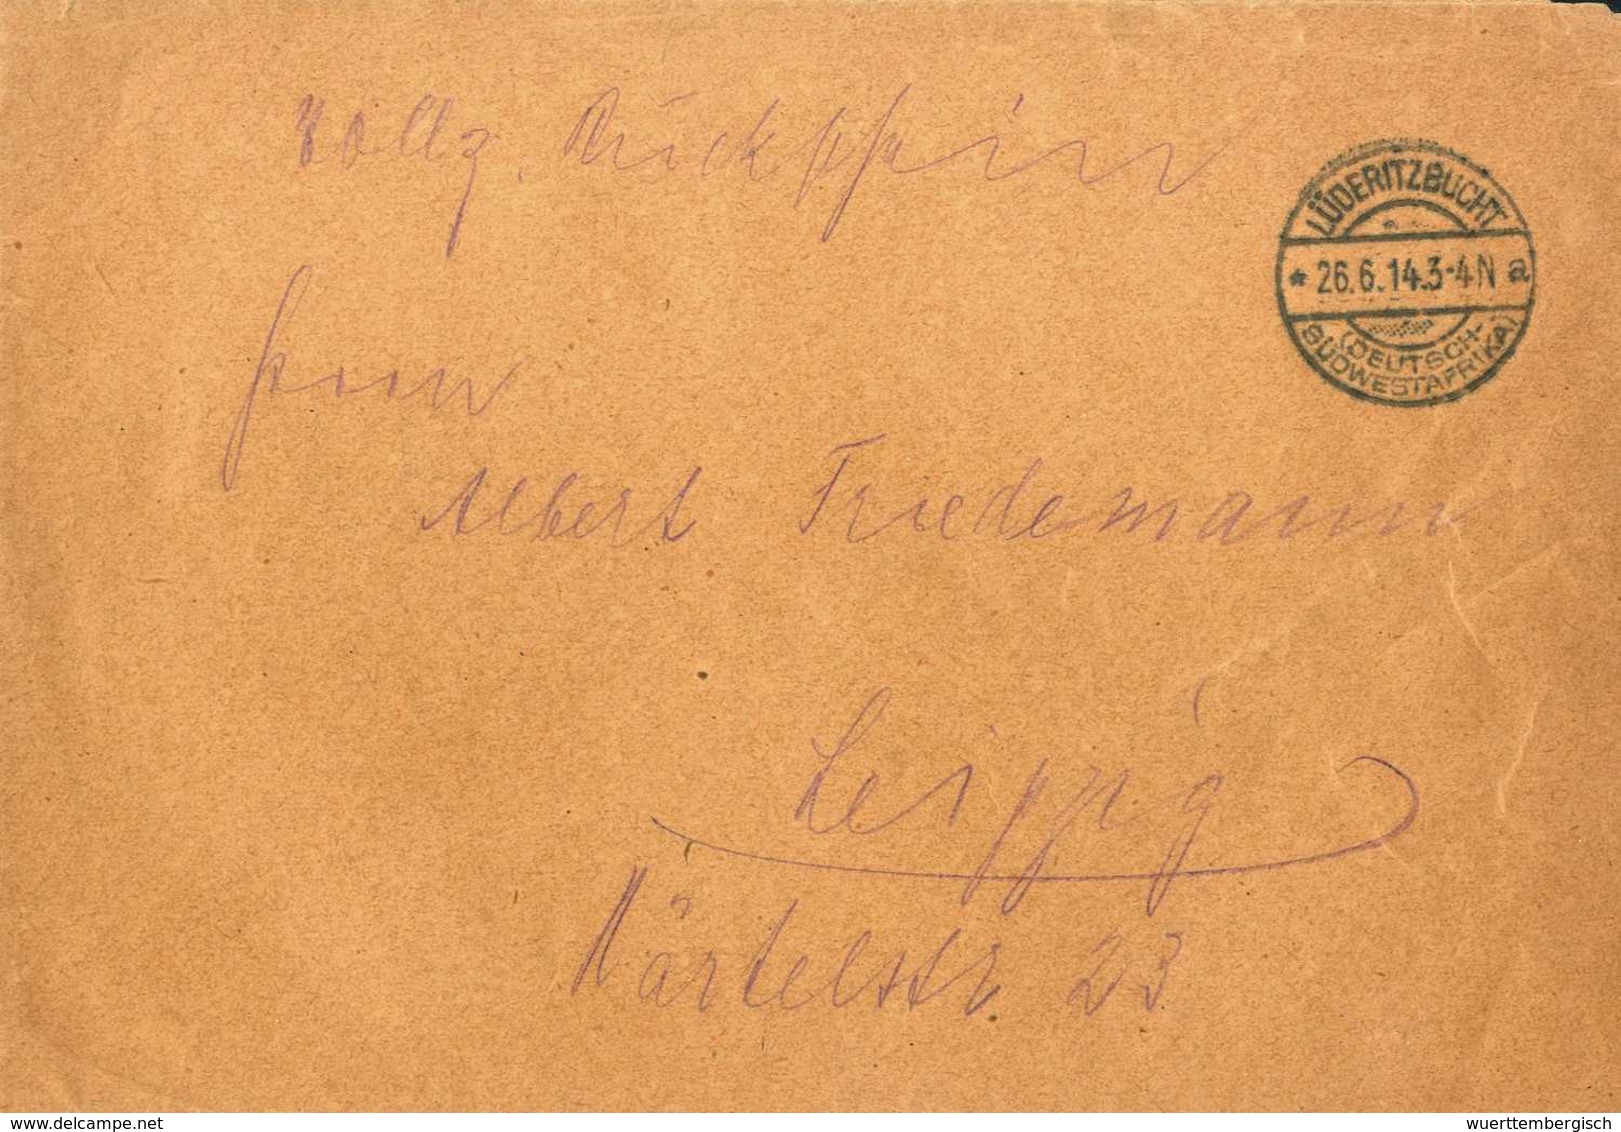 Vollz. Rückschein
LÜDERITZBUCHT
* 26.6.14.3-4N a
(DEUTSCH-
SÜDWESTAFRIKA)
Herrn
Albert Friedemann
Leipzig
Härtelstr 23
delcampe.net
wuerttembergisch